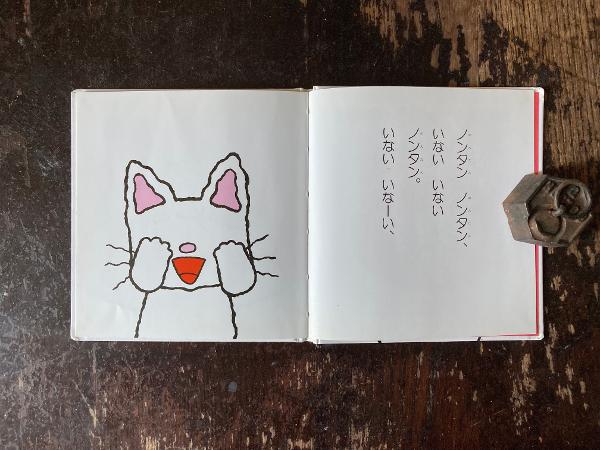 ノンタン ノンタン、
いない いない
ノンタン。
いない いなーい、